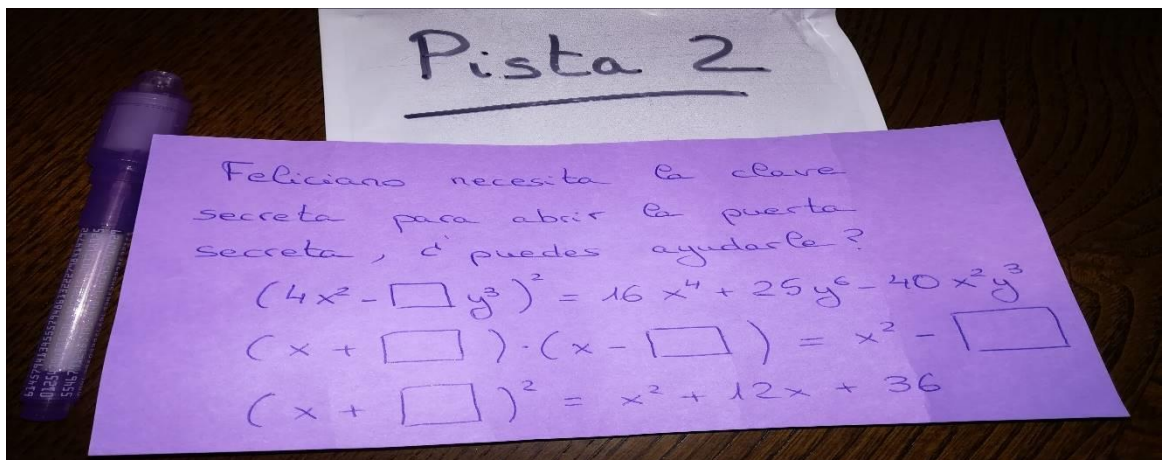 Pista 2
Feliciano necesita la clave
secreta para abrir la puerta
secreta, ¿puedes ayudarle?
(4x² - □ y³)² = 16x⁴ + 25y⁶ - 40x²y³
(x + □)·(x - □) = x² - □
(x + □)² = x² + 12x + 36